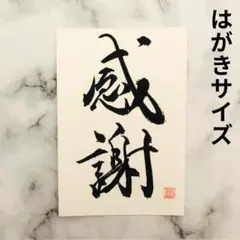 はがきサイズ
感謝